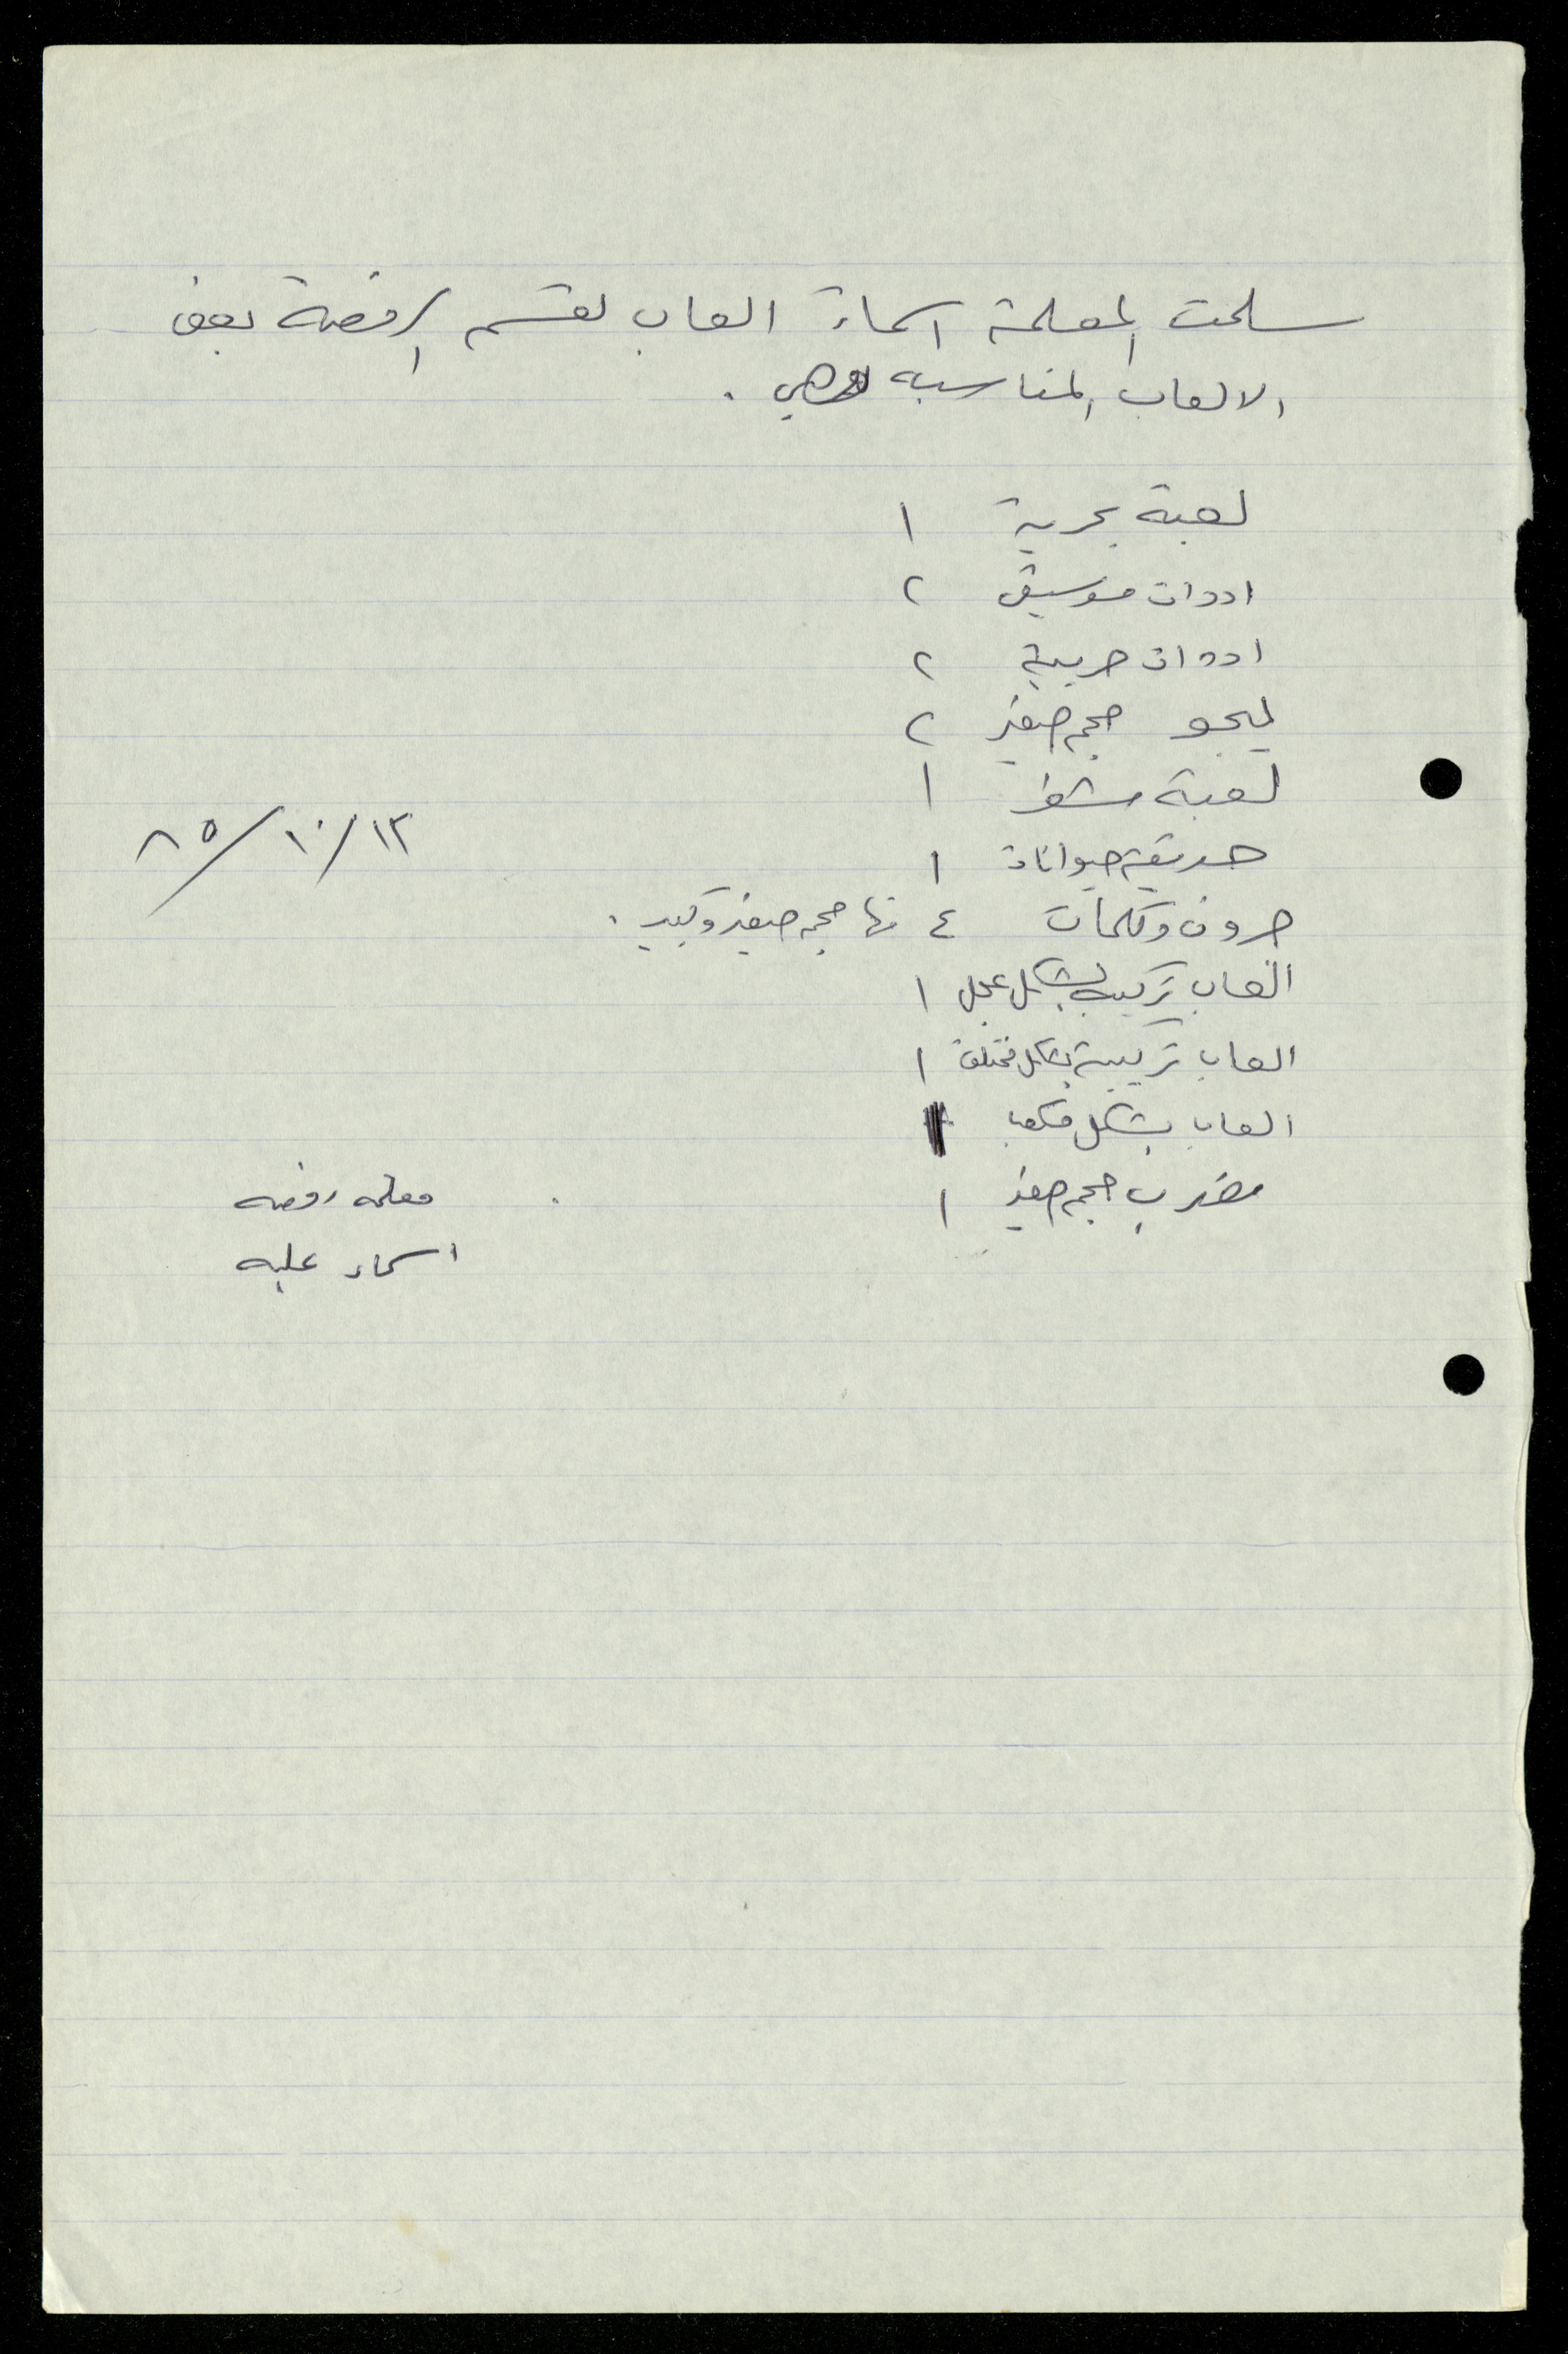 سلمت المعلمة اسماء العاب لقسم الروضة بعض
الالعاب المناسبه وهي .
لعبة بحرية ١
ادوات موسيقى ٢
ادوات حربية ٢
ليجو حجم صغير ٢
لعبة ١
حديقة حيوانات ١
١٢/١٠/٨٥
حروف وكلمات ٤ منها حجم صغير وكبير .
العاب تركيبة بشكل عجل ١
العاب تركيبة بشكل مختلف ١
العاب بشكل مكعب ١
مضرب حجم صغير ١
معلمه روضه
اسماء